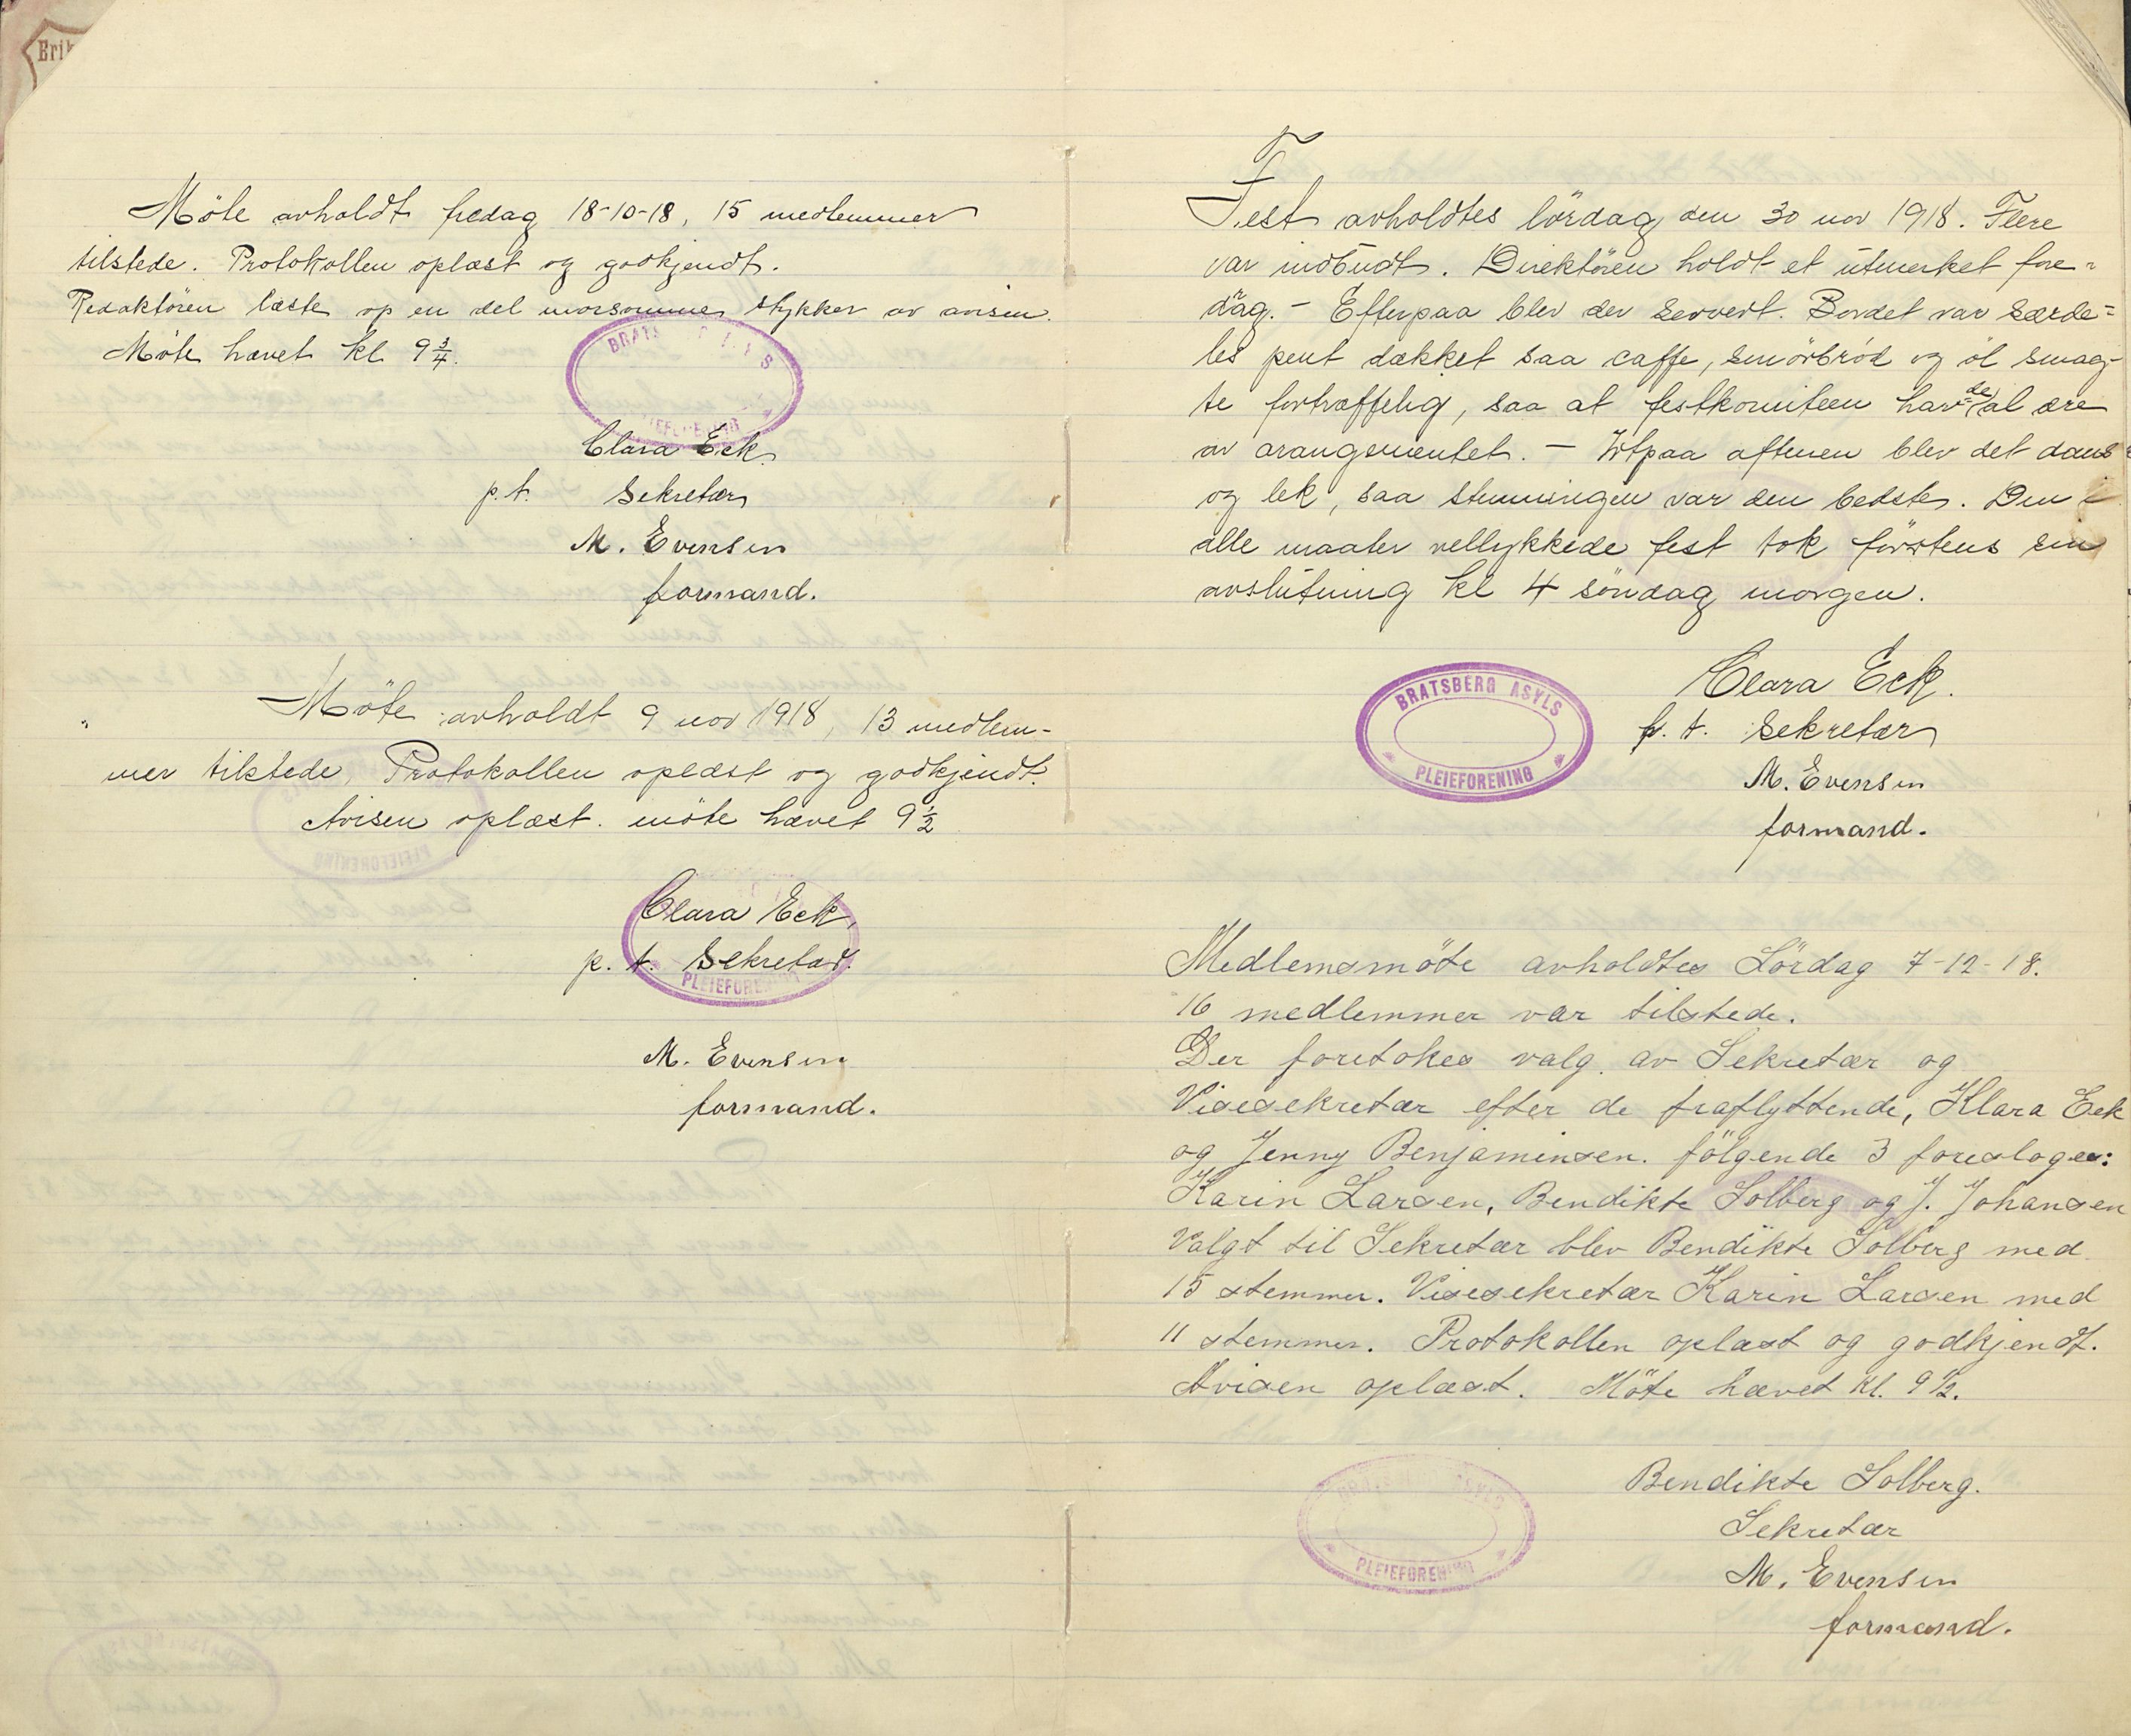 Erik
Möte avholdt fredag 18-10-18, 15 medlemmer
tilstede. Protokollen oplæst og godkjendt.
Redaktören læste op en del morsomme stykker av avisen.
Möte hævet kl 9 3/4.
Clara Eck
p.t. Sekretær
M. Evensen
formand.
Möte avholdt 9 nov 1918, 13 medlem-
mer tilstede, Protokollen oplæst og godkjendt.
Avisen oplæst. möte hævet 9 1/2
Clara Eck,
p. t. Sekretær.
PLEIEFORENING
M. Evensen
formand.
Fest avholdtes lördag den 30 nov 1918. Flere
var indbudt. Direktören holdt et utmerket fore=
drag. - Efterpaa blev der servert. Bordet var særde=
les pent dækket saa caffe, smörbröd og öl smag-
te fortræffelig, saa at festkomiteen havde al ære
av arangementet. - Utpaa aftenen blev det dans
og lek, saa stemningen var den bedste. Den i
alle maater vellykkede fest tok förstens sin
avslutning kl 4 söndag morgen.
Clara Eck.
p. t. Sekretær
M. Evensen
formand.
BRATSBERG ASYLS
PLEIEFORENING
Medlemsmöte avholdtes Lördag 7-12-18.
16 medlemmer var tilstede.
Der foretokes valg av Sekretær og
Visesekretær efter de fraflyttende, Klara Eek
og Jenny Benjaminsen. fölgende 3 foresloges:
Karin Larsen, Bendikte Solberg og J. Johansen
Valgt til Sekretær blev Bendikte Solberg med
15 stemmer. Visesekretær Karin Larsen med
11 stemmer. Protokollen oplæst og godkjendt.
Avisen oplæst. Möte hævet kl. 9 1/2.
Bendikte Solberg.
Sekretær
M. Evensen
formand.
BRATSBERG ASYLS
PLEIEFORENING